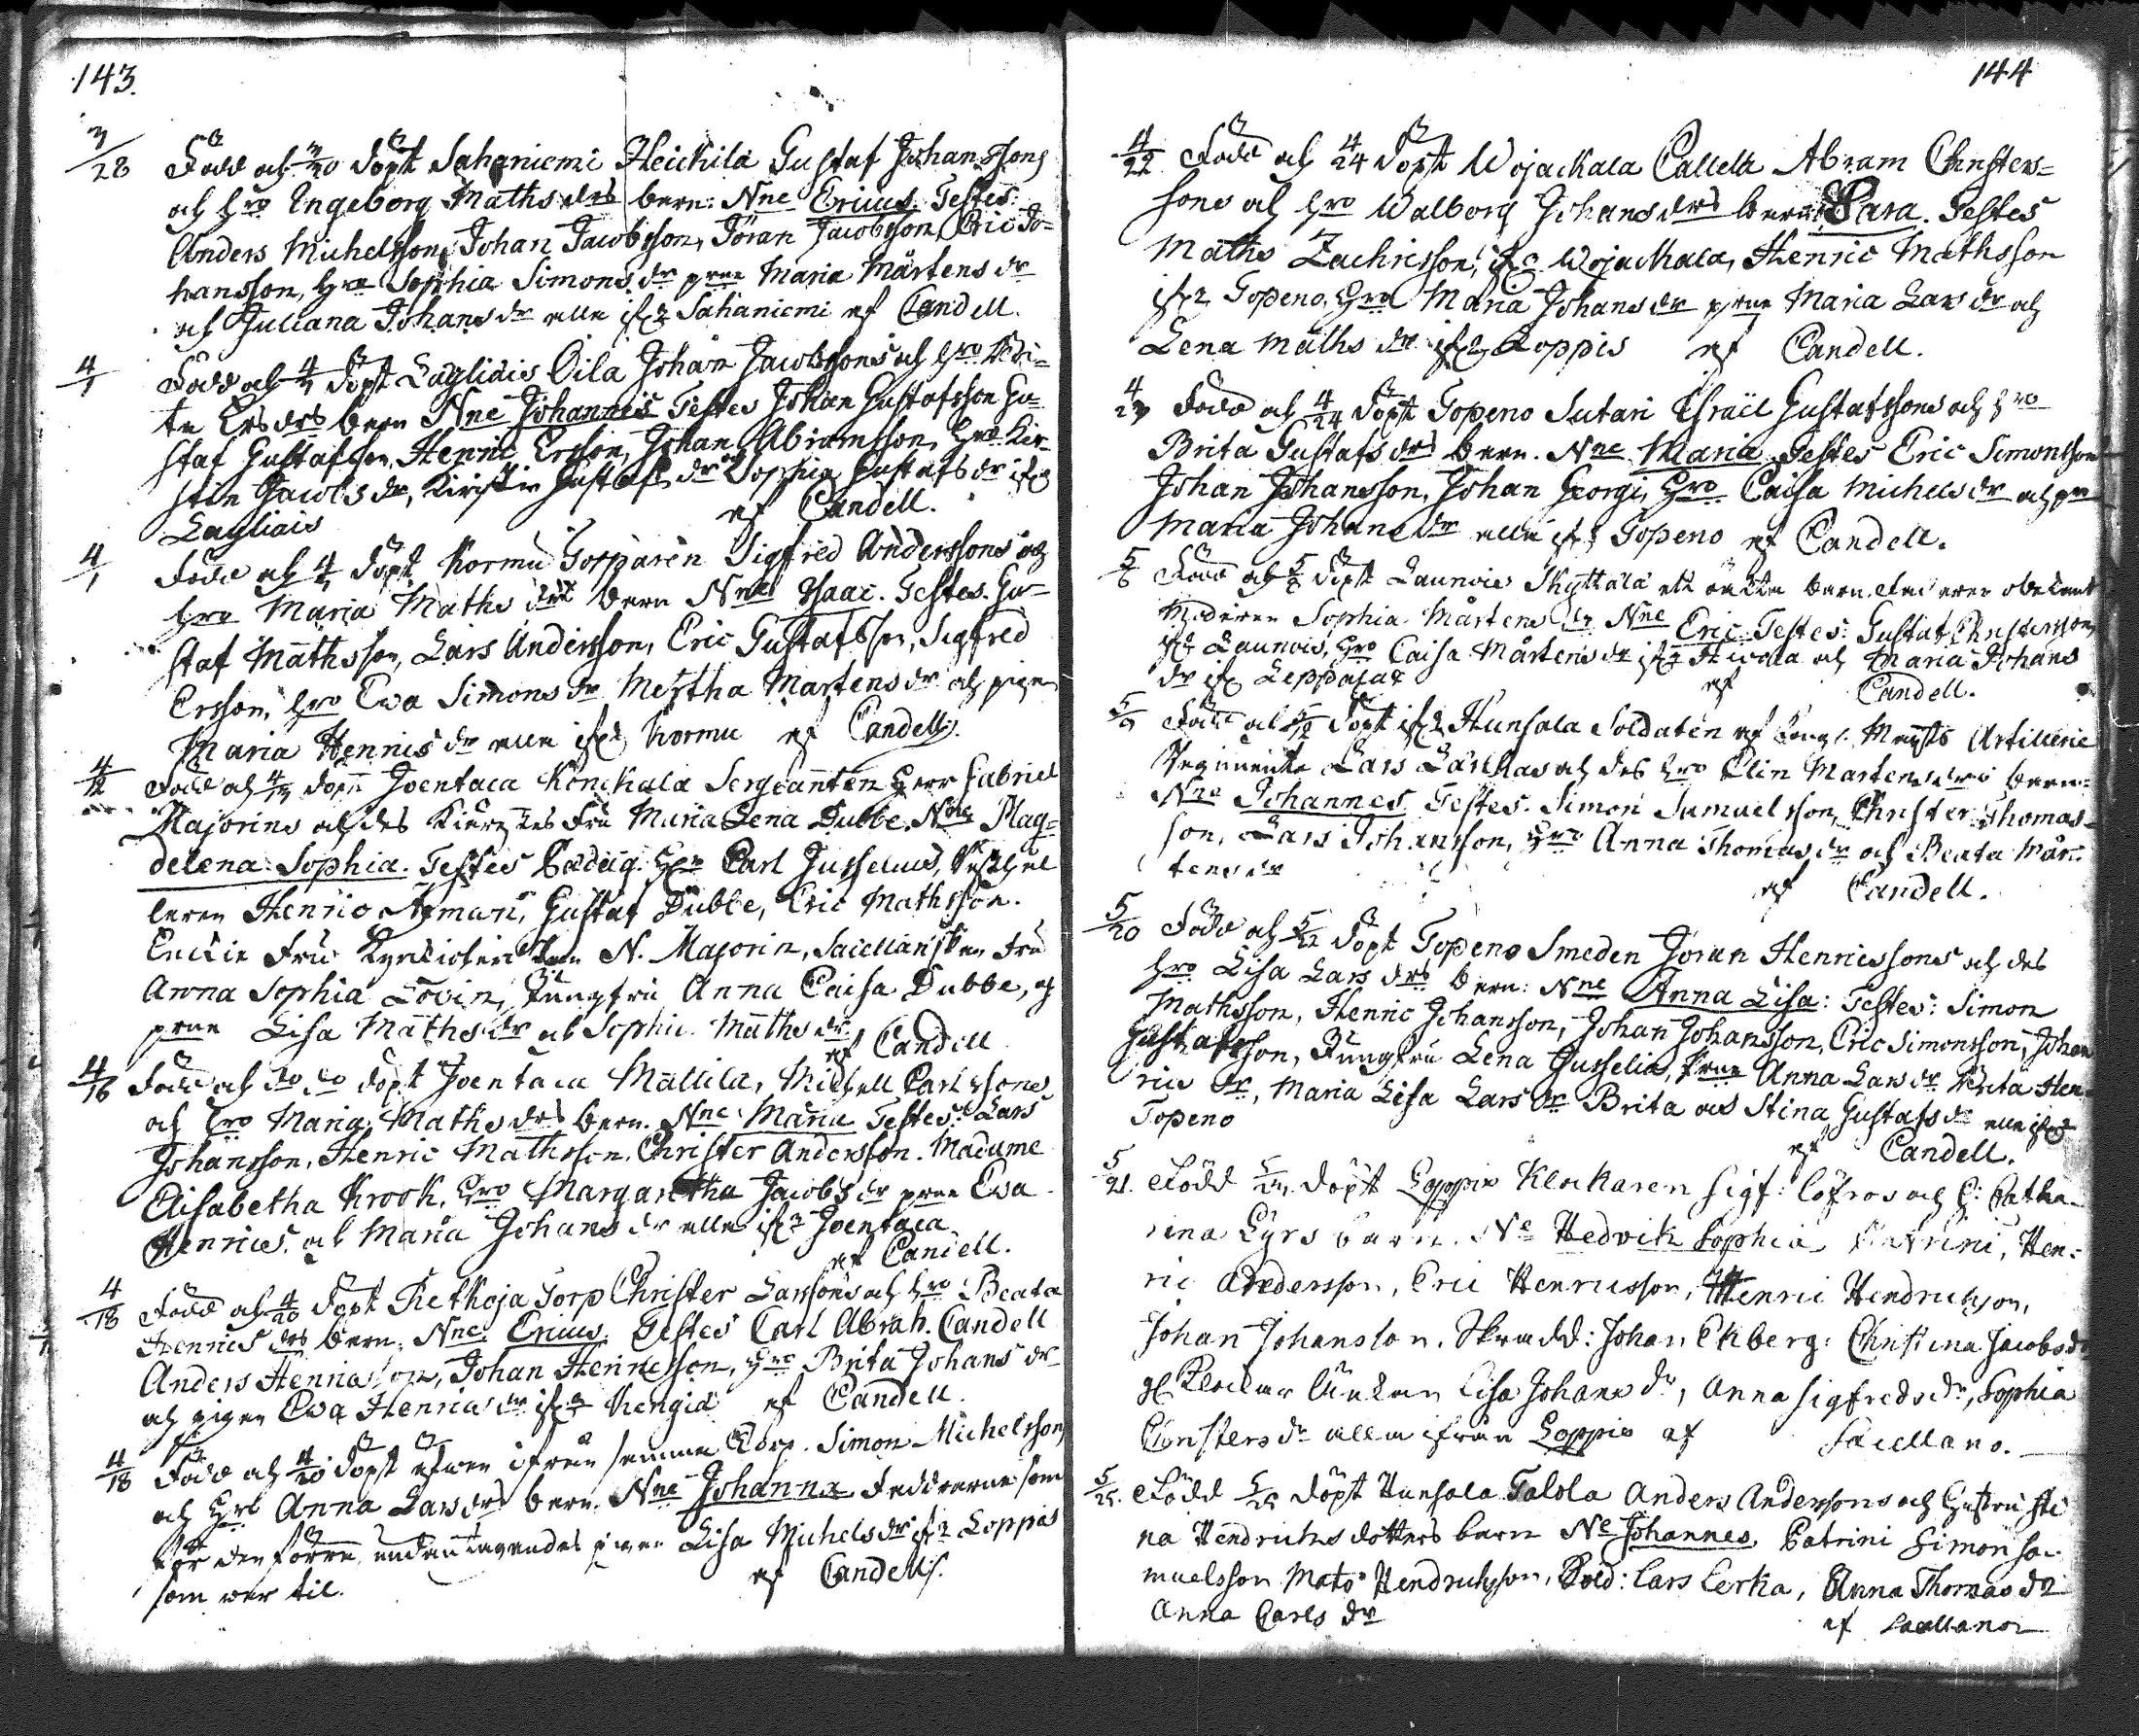 143.
3/28 Född och 3/30 döpt Sahaniemi Heickilä Gustaf Johanssons
och hro Ingeborg Mathsdrs barn: Nne Ericus. Testes:
Anders Michelsson, Johan Jacobsson, Jöran Jacobsson, Eric Jo=
hansson, hro Sophia Simonsdr prne Maria Mårtensdr
och Juliana Johansdr alla ifr Sahaniemi af Candell.
4/1 Född och 4/ döpt Lagliais Oila Johan Jacobssons och hro Bri=
ta Ersdrs barn Nne Johannes Testes Johan Gustafsson Gu=
staf Gustafsson, Henric Ersson, Johan Abramsson, hro Kir=
stin Jacobsdr, Kirstin Gustafsdr Sophia Gustafsdr ifr
Lagliais af Candell.
4/1 Född och 4/ döpt Kormu Torparen Sigfred Anderssons och
hro Maria Mathsdrs barn Nne Isaac. Testes. Gu=
staf Mathsson, Lars Andersson, Eric Gustafsson, Sigfred
Ersson, hro Ewa Simonsdr Mertha Mårtensdr och pigan
Maria Henricsdr alla ifr Kormu af Candell.
4/12 Född och 4/ döpt Joentaca Konckala Sergeanten Herr Gabriel
Majorins och des Kiäraste Fru Maria Lena Dubbe. Nne Mag=
delena Sophia. Testes Pædag. Hr Carl Jusselius,
Henric Åkman, Gustaf Dubbe, Eric Mathsson.
Enckie Fru N. Majorin, Saiellanskan Fru
Anna Sophia Lovin, Jungfru Anna Caisa Dubbe, och
prne Lisa Mathsdr och Sophia Mathsdr
af Candell
4/16 Född och do do döpt Joentaca Mällilä, Michell Carlssons
och hro Maria Mathsdrs barn. Nne Maria Testes: Lars
Johansson, Henric Mathsson, Christer Andersson. Madame
Elisabetha Krook, hro Margaretha Jacobsdr prne Ewa
Henrics och Maria Johansdr alla ifr Joentaca
af Candell.
4/18 Född och 4/20 döpt Rethoja Torp Christer Larssons och hro Beata
Henricsdrs barn. Nne Ericus. Testes Carl Abrah. Candell
Anders Henricsson, Johan Henricsson, hro Brita Johansdr
och pigan Ewa Henricsdr ifr Kengiä af Candell.
4/18 Född och 4/20 döpt äfwen ifrån samma Torp. Simon Michelssons
och hro Anna Larsdrs barn. Nne Johanna Faddrarne som
för den förra undantagandes pigan Lisa Michelsdr ifr Loppis
som war til. af Candell.
144
4/22 Född och 4/24 döpt Wojackala Callela Abram Christers=
sons och hro Walborg Johansdrs barn Sara. Testes
Maths Zachrisson, ifr Wojackala, Henric Mathsson
ifr Topeno, hro Maria Johansdr prne Maria Larsdr och
Lena Mathsdr ifr Loppis af Candell.
4/23 Född och 4/24 döpt Topeno Sutari Israël Gustafssons och hro
Brita Gustafsdrs barn. Nne Maria Testes Eric Simonsson
Johan Johansson, Johan Georgi, hro Caisa Michelsdr och pn
Maria Johansdr alla ifr Topeno af Candell.
5/6 Född och 5/8 döpt Launois Skyttälä ett oäckta barn. Fadren obekant
Modren Sophia Mårtensdr Nne Eric Testes: Gustaf Christersson,
ifr Launois, hro Caisa Mårtensdr ifr Hirvola och Maria Johans
dr ifr Leppälax af Candell.
5/9 Född och 5/ döpt ifr Hunsala Soldaten af Kongl. Maysts Artillerie
Regimente Lars Lärkas och des hro Elin Mårtensdrs barn=
Nne Johannes Testes. Simon Samuelsson, Christer Thomas=
son, Lars Johansson, hro Anna Thomasdr och Beata Mår=
tensdr af Candell.
5/20 Född och 5/22 döpt Topeno Smeden Jöran Henricssons och des
hro Lisa Larsdrs barn: Nne Anna Lisa: Testes: Simon
Mathsson, Henric Johansson, Johan Johansson, Eric Simonsson, Johan
Gustafsson, Jungfru Lena Jusselia, Prne Anna Larsdr Brita Hen=
ricsdr, Maria Lisa Larsdr Brita och Stina Gustafsdr alla ifr
Topeno af Candell.
5/21. Född 5/ döpt Loppis Klockaren Sigf: Löfros och h: Catha=
rina Lyrs barn. Ne Hedvik Sophia Patrini, Hen=
ric Andersson, Eric Henricsson, Henric Hendricsson,
Johan Johansson. Skradd: Johan Ekberg: Christina Jacobsdr
gl Klockar Enkan Lisa Johansdr, Anna Sigfredsdr, Sophia
Christersdr alla ifrån Loppis af Saiellano.
5/25. Född 5/28 döpt Hunsala Talola Anders Anderssons och Hustru Sti
na Hendrichsdotters barn Ne Johannes. Patrini Simon Sa=
muelsson Mats Hendrichsson, Sold: Lars Lerka, Anna Thomasdr
Anna Carlsdr af Saiellano